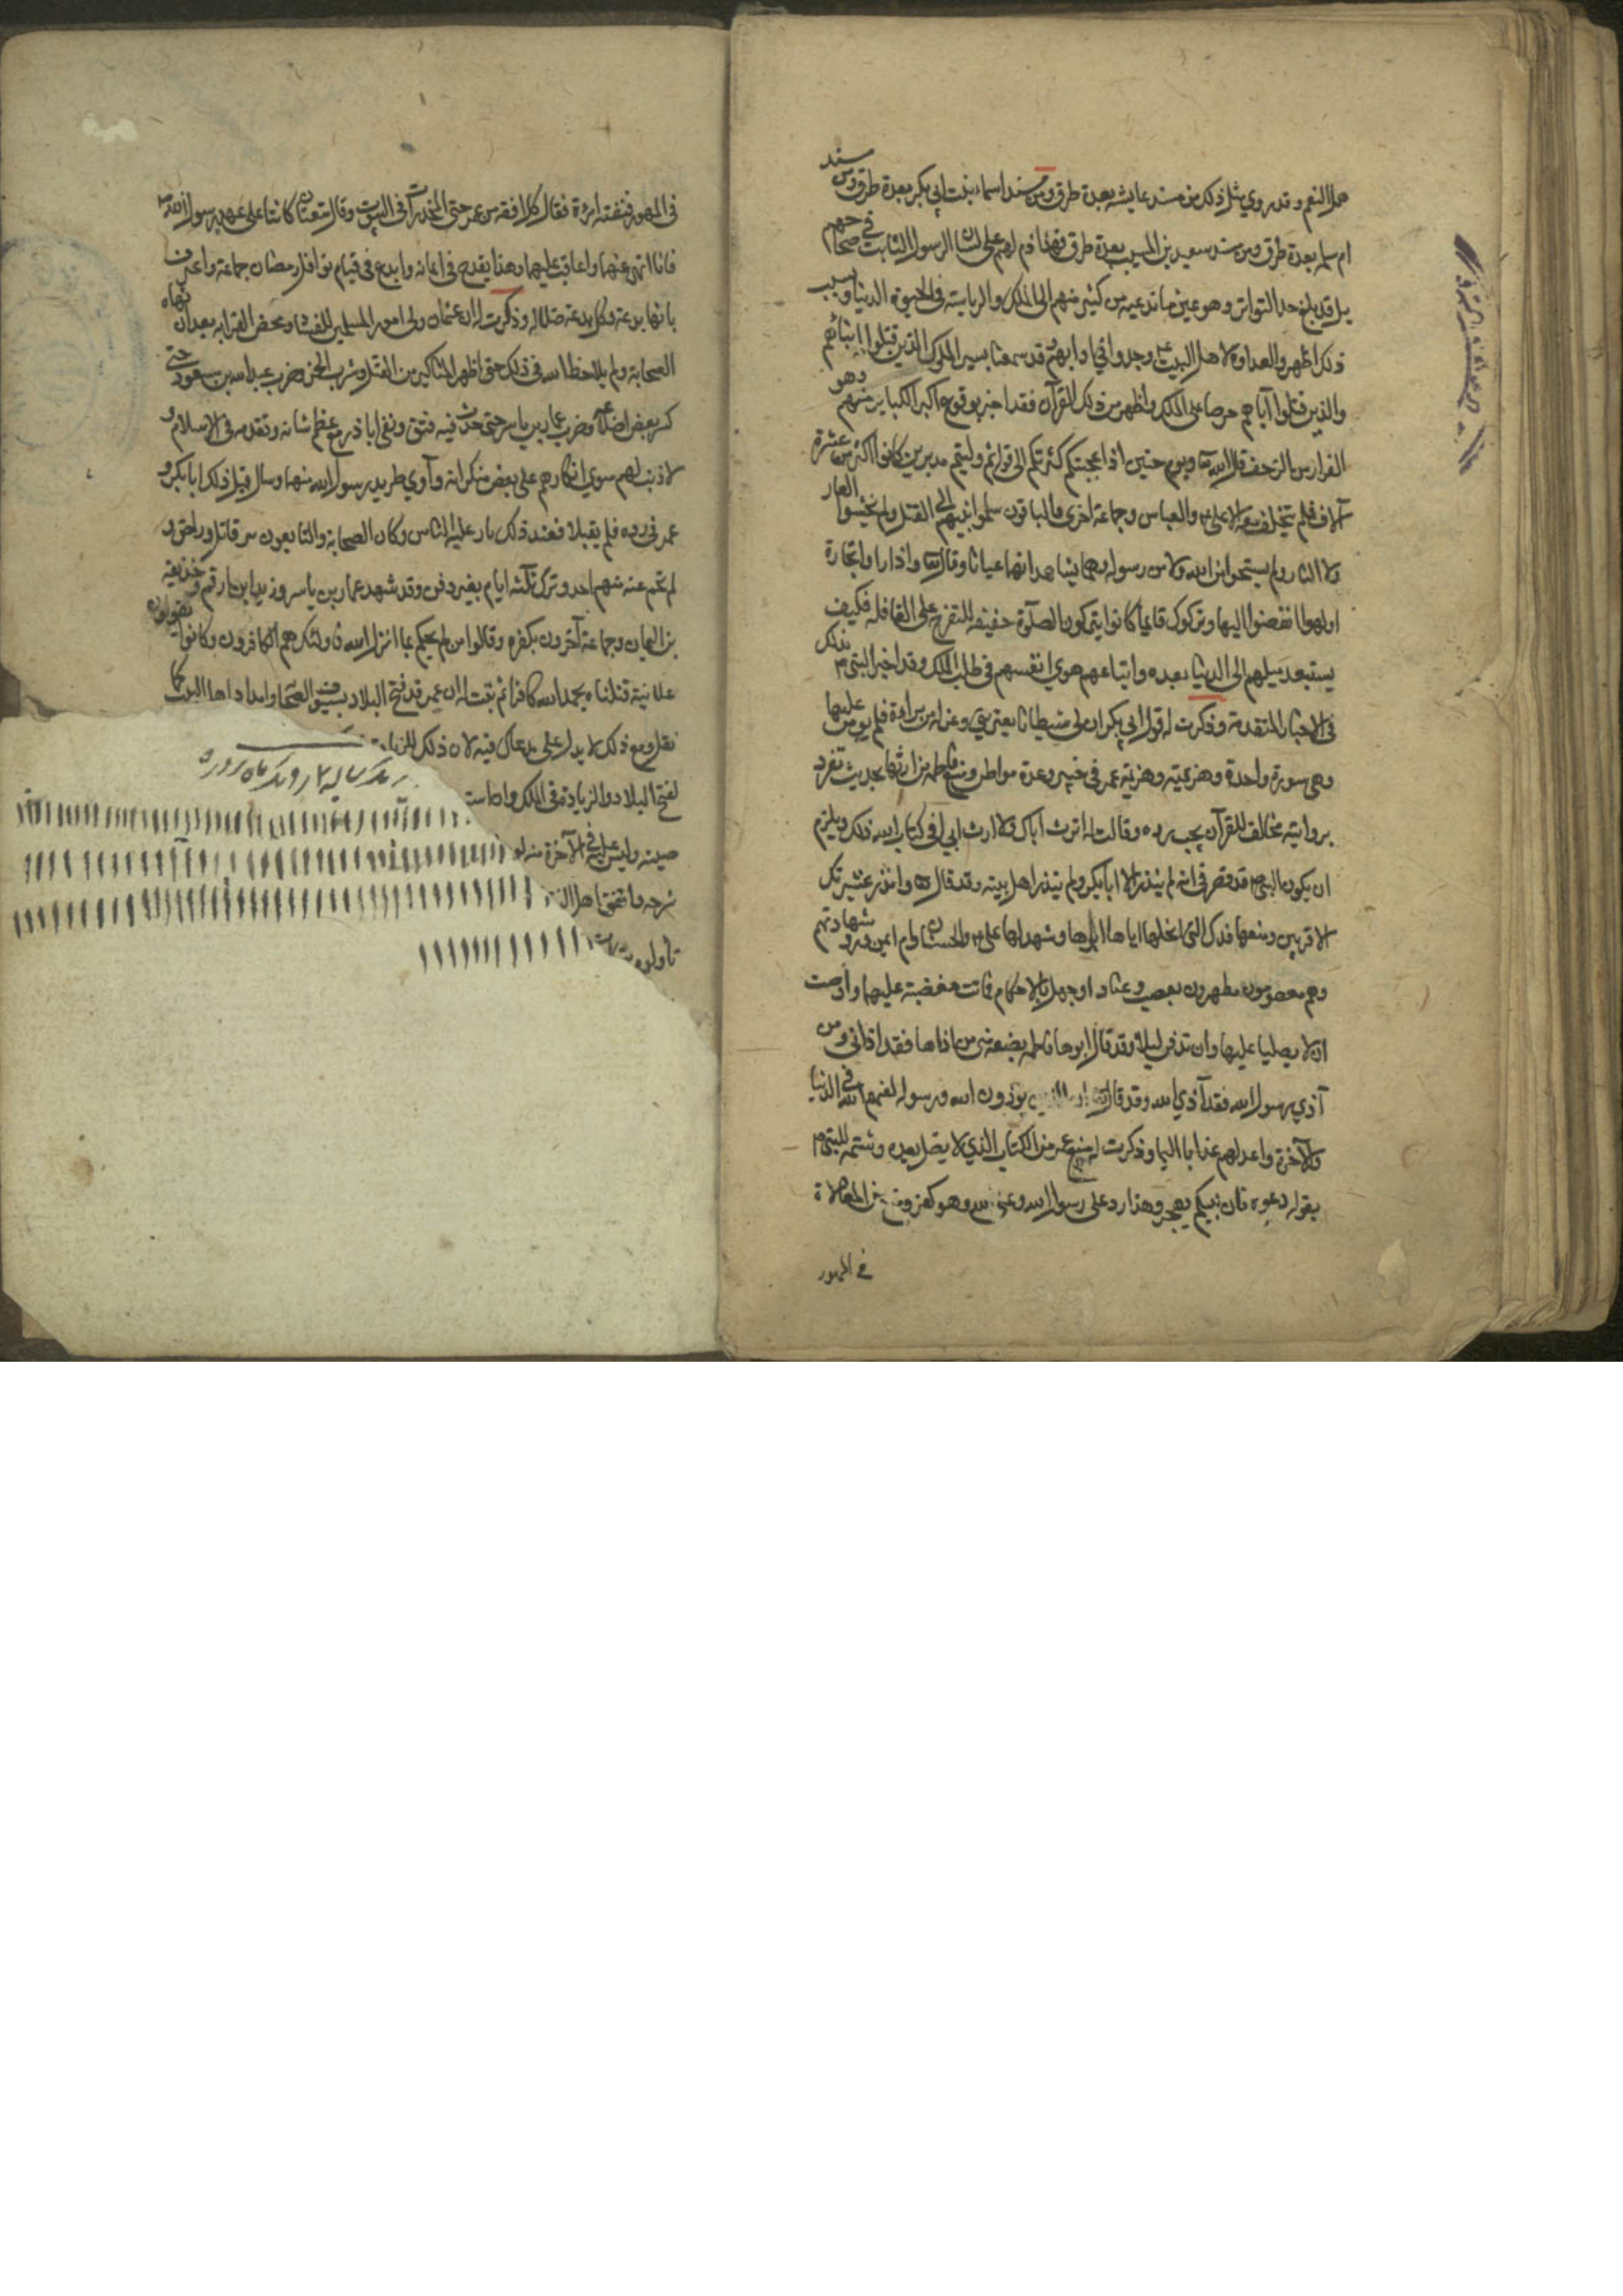 همل النعم وقد روي مثل ذلك من مسند عايشه بعدة طرق ومن مسند اسماء بنت ابي بكر بعدة طرق ومن مسند
ام سلمه بعدة طرق ومن مسند سعيد بن المسيب بعدة طرق فهذا ذم لهم على لسان الرسول الثابت في صحاحهم
بل قد بلغ حد التواتر وهو عين ما ندعيه من كثير منهم الى الملك والرياسة في الحيوة الدنيا وبسبب
ذلك اظهروا العداوة لاهل البيت وقد سمعنا بسير الملوك الذين قتلوا ابنائهم
والذين قتلوا آباهم حرصا على الملك واظهر من ذلك القرآن فقد اخبر بوقوع اكبر الكباير منهم وهو
الفرار من الزحف قال الله تعا ويوم حنين اذ اعجبتكم كثرتكم الى قوله ثم وليتم مدبرين كانوا اكثر من عشرة
آلاف فلم يتخلف معه الا على والعباس وجماعة اخرى والباقون سلموا نبيهم الى القتل ولم يخشوا العار
ولا النار ولم يستحوا من الله ولا من رسوله وهما يشاهدانهما عيانا وقال تعا واذا راوا تجارة
او لهوا انفضوا اليها وتركوك قايما كانوا يتركون الصلوة خفيفه للتفرج على القافله فكيف
يستبعد ميلهم الى الدنيا بعده واتباعهم هوى انفسهم في طلب الملك وقد اخبر النبى بذلك
فى الاخبار المتقدمة وذكرت له قول ابي بكر ان لى شيطانا يعتريني وعزله من براءة فلم يؤمن عليها
وهى سورة واحدة وهزيمته وهزيمة عمر في خيبر وعدة مواطن ومنع فاطمه من ارثها بحديث تفرد
بروايته مخالف للقرآن يجب رده وقالت له اترث اباك ولا ارث ابي افي كتاب الله ذلك ويلزم
ان يكون النبى قد قصر في انه لم ينذر الا ابا بكر ولم ينذر اهل بيته وقد قال له وانذر عشيرتك
الاقربين ومنعها فدك التى انحلها اياها ابوها وشهد لها على والحسنان وام ايمن ورد شهادتهم
وهم معصومون مطهرون بعصب وعناد او جهل بالاحكام فماتت مغضبة عليهما واوصت
ان لا يصليا عليها وان تدفن ليلا وقد قال ابوها فاطمه بضعة منى من اذاها فقد اذانى ومن
آذي رسول الله فقد آذي الله وقد قال تعا ان الذين يؤذون الله ورسوله لعنهم الله في الدنيا
والآخرة واعد لهم عذابا اليما وذكرت له منع عمر من الكتاب الذي لا يضل بعده وشتمه للنبى
بقوله دعوه فان نبيكم يهجر وهذا رد على رسول الله وعن الله وهو كفر ومنع من المغالاة
في المهور
فى المهور فنبهته امرأة فقال كل افقه من عمر حتى المخدرات في البيوت وقال متعتان كانتا على عهد رسول الله
فانا انهى عنهما واعاقب عليهما وهذا يقدح في ايمانه وابدع في قيام نوافل رمضان جماعة واعترف
بانها بدعة وكل بدعة ضلاله وذكرت له ان عثمان ولى امور المسلمين للفساد ومحض القرابه بعد ان نهاه
الصحابة ولم يلاحظ الله في ذلك حتى اظهر المناكير من القتل وشرب الخمر وضرب عبد الله بن مسعود حتى
كسر بعض اضلاعه وضرب عمار بن ياسر حتى حدث فيه فتق ونفى ابا ذر مع عظم شانه وتقدمه في الاسلام و
لا ذنب لهم سوى انكارهم على بعض منكراته وآوى طريد رسول الله منها وسال قبل ذلك ابا بكر و
عمر في رده فلم يقبلا فعند ذلك بار عليه الناس وكان الصحابة والتابعون من قاتل وراض و
لم تحم عنه منهم احد وترك ثلثه ايام بغير دفن وقد شهد عمار بن ياسر وزيد ابن ارقم وحذيفه
بن اليمان وجماعة آخرون بكفره وقالوا من لم يحكم بما انزل الله فاولئك هم الكافرون وكانوا يقولون
علانية قتلناه بحمد الله كافرا ثم بقت له ان عمر قد فتح البلاد بسيوف الصحابة وامداد اهل البيت كما
نقل ومع ذلك لا يدل على مدعاك فيه لان ذلك
لفتح البلاد والزيادة فى الملك واما
صيته وليس عليه في الآخرة